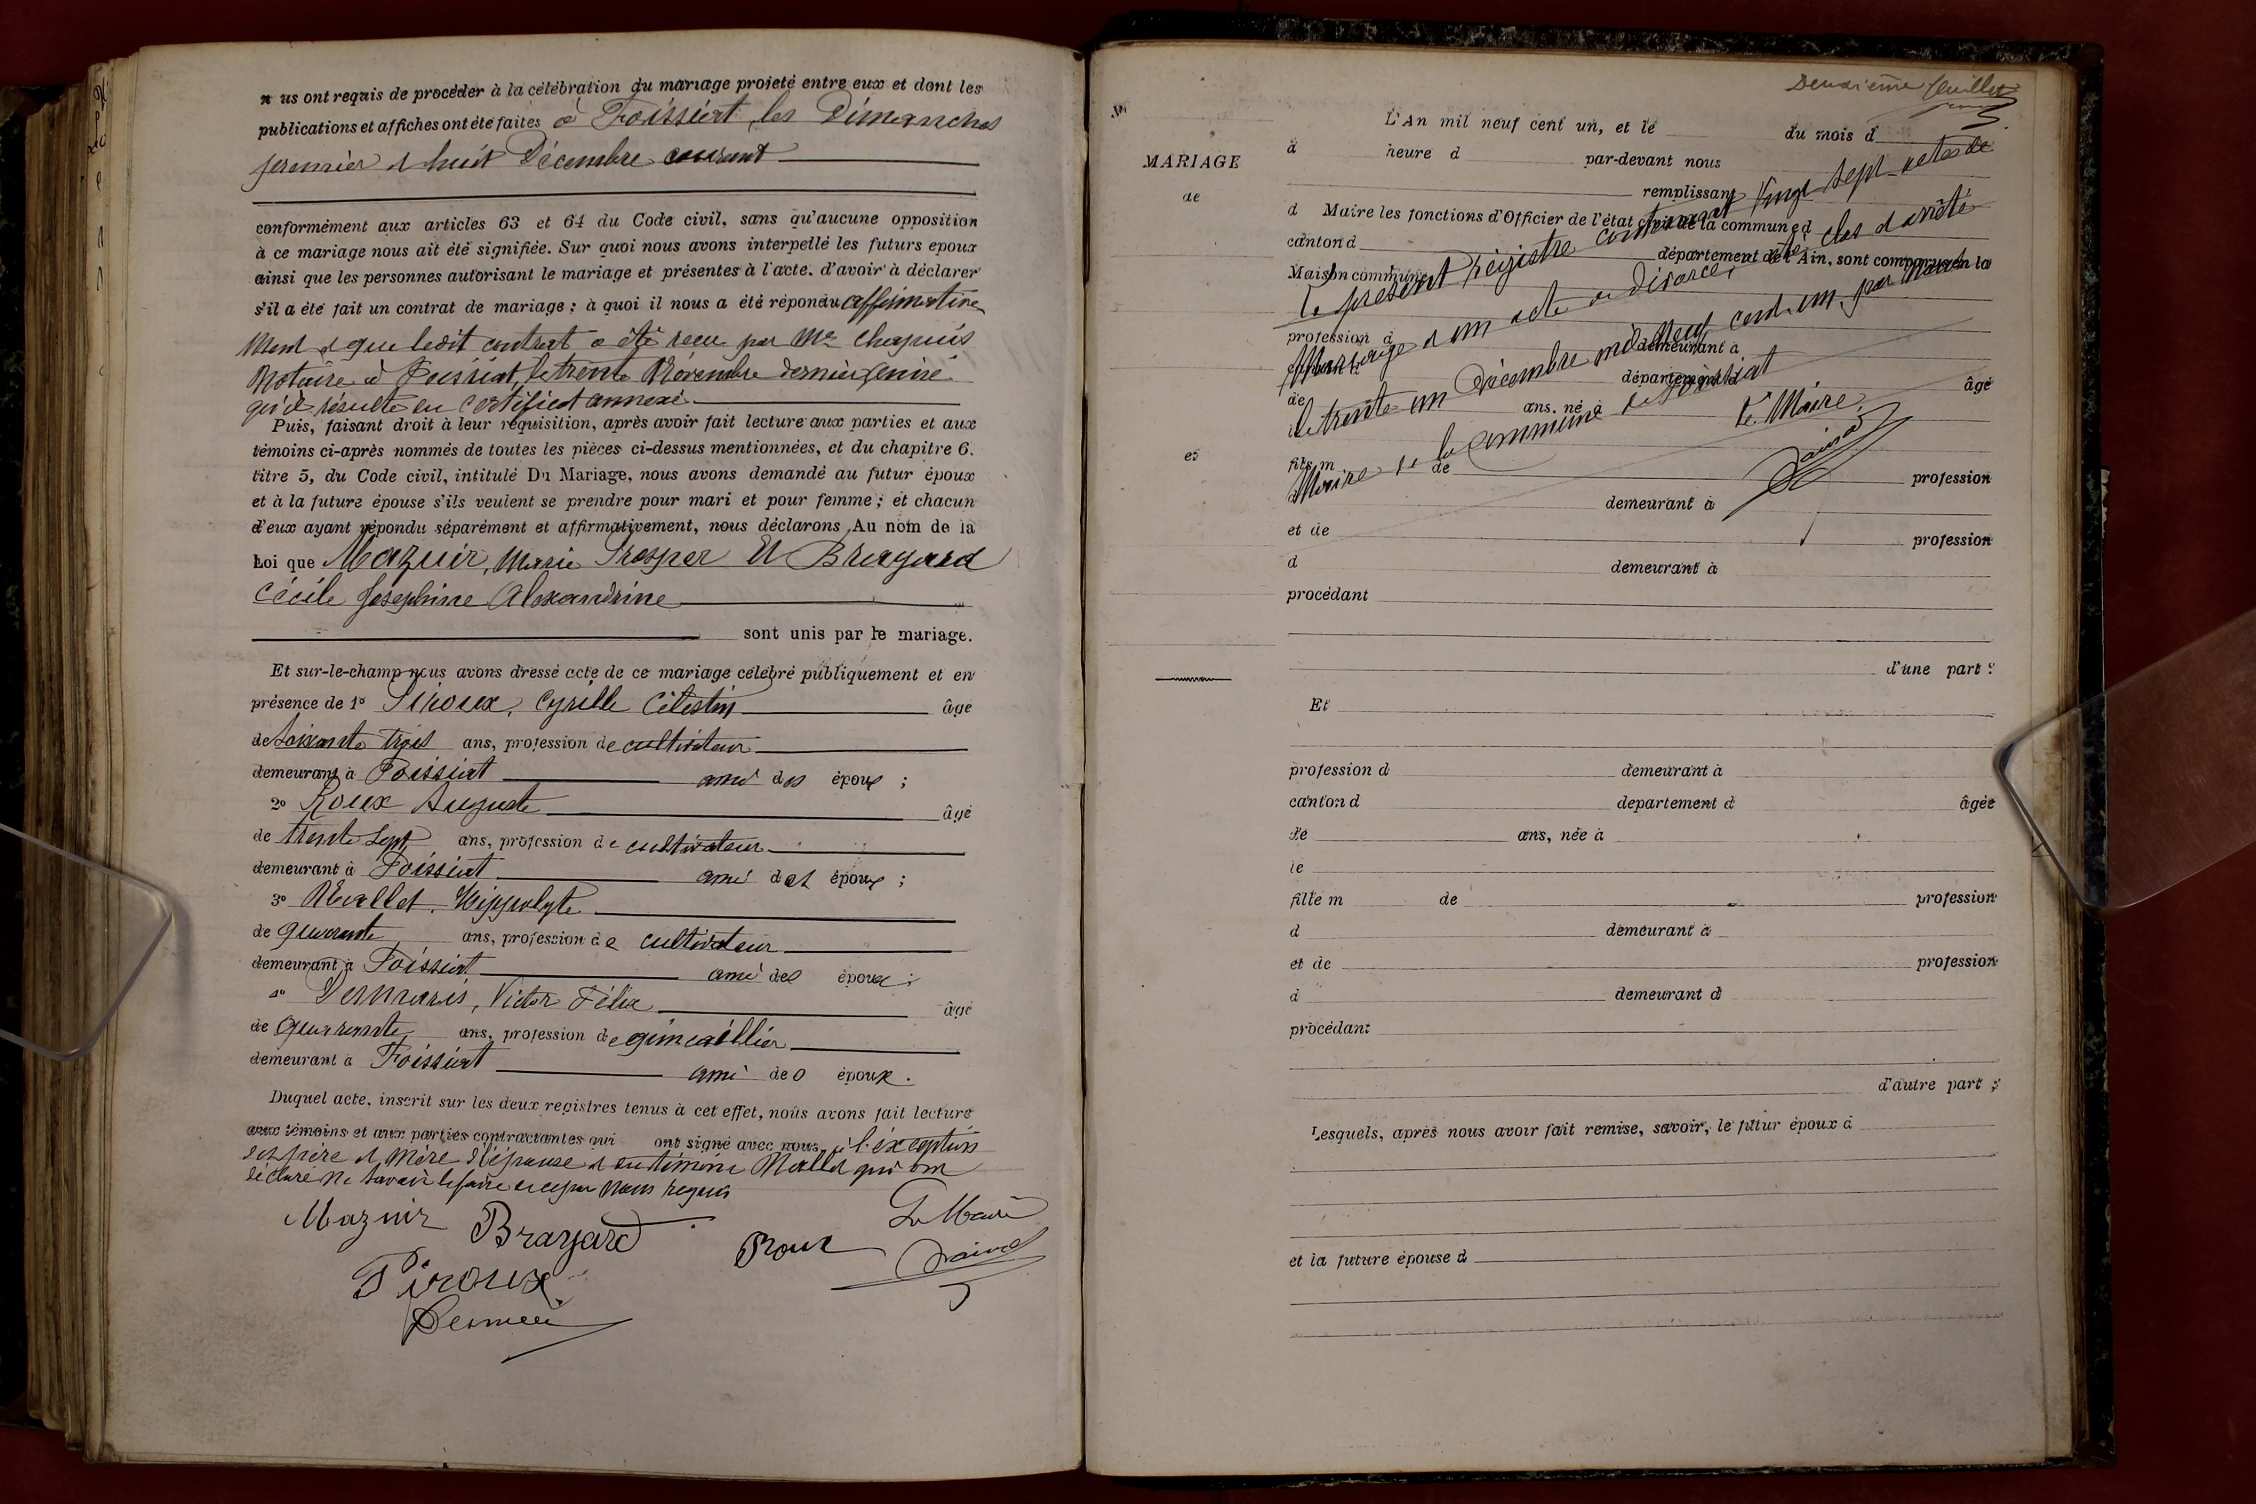 n us ont requis de procéder à la célébration du mariage projeté entre eux et dont les
publications et affiches ont été faites à Foissiat, les Dimanches
premier et huit Décembre courant
conformément aux articles 63 et 64 du Code civil, sans qu'aucune opposition
à ce mariage nous ait été signifiée. Sur quoi nous avons interpellé les futurs epoux
ainsi que les personnes autorisant le mariage et présentes à l'acte, d'avoir à déclarer
s'il a été fait un contrat de mariage ; à quoi il nous a été répondu affirmative
ment et que ledit contrat a été reçu par Me Chapuis
Notaire à Foissiat, le trente Novembre dernier
qu'il résulte du certificat annexé.
Puis, faisant droit à leur réquisition, après avoir fait lecture aux parties et aux
témoins ci-après nommés de toutes les pièces ci-dessus mentionnées, et du chapitre 6.
titre 5, du Code civil, intitulé Du Mariage, nous avons demandé au futur époux
et à la future épouse s'ils veulent se prendre pour mari et pour femme ; et chacun
d'eux ayant répondu séparément et affirmativement, nous déclarons Au nom de la
Loi que Mazuir, Marie Prosper Et Brayard
Cécile Joséphine Alexandrine
sont unis par le mariage.
Et sur-le-champ nous avons dressé acte de ce mariage célébré publiquement et en
présence de 1° Piroux, Cyrille Célestin âgé
de soixante trois ans, profession de cultivateur
demeurant à Foissiat ami des époux ;
2° Roux Auguste âgé
de trente sept ans, profession de cultivateur
demeurant à Foissiat ami des époux ;
3° Mallet, Hippolyte
de quarante ans, profession de cultivateur
demeurant à Foissiat ami des époux ;
4° Desmaris, Victor Félix âgé
de quarante ans, profession de quincaillier
demeurant à Foissiat ami des époux.
Duquel acte, inscrit sur les deux registres tenus à cet effet, nous avons fait lecture
aux témoins et aux parties contractantes qui ont signé avec nous, à l'exception
des père et mère de l'épouse et du témoin Mallet qui ont
déclaré ne savoir le faire de ce par nous requis
Mazuir Brayard Le Maire
Roux
Piroux
Deuxième feuillet
N°
MARIAGE
de
et
L'An mil neuf cent un, et le du mois d
à heure d par-devant nous
remplissant
d Maire les fonctions d'Officier de l'état civil de la commune d
canton d département de l'Ain, sont comparus en la
Maison commune
profession d demeurant à
canton d département d âgé
de ans, né à
le
fils m de profession
d demeurant à
et de profession
d demeurant à
procédant
d'une part ;
Le présent registre contenant vingt sept actes de
Mariage et un acte de divorce, a été clos et arrêté
le trente un Décembre mil neuf cent un, par Nous
Maire de la commune de Foissiat
Le Maire
Et
profession d demeurant à
canton d département d âgée
de ans, née à
le
fille m de profession
d demeurant à
et de profession
d demeurant à
procédant
d'autre part ;
Lesquels, après nous avoir fait remise, savoir, le futur époux d
et la future épouse d